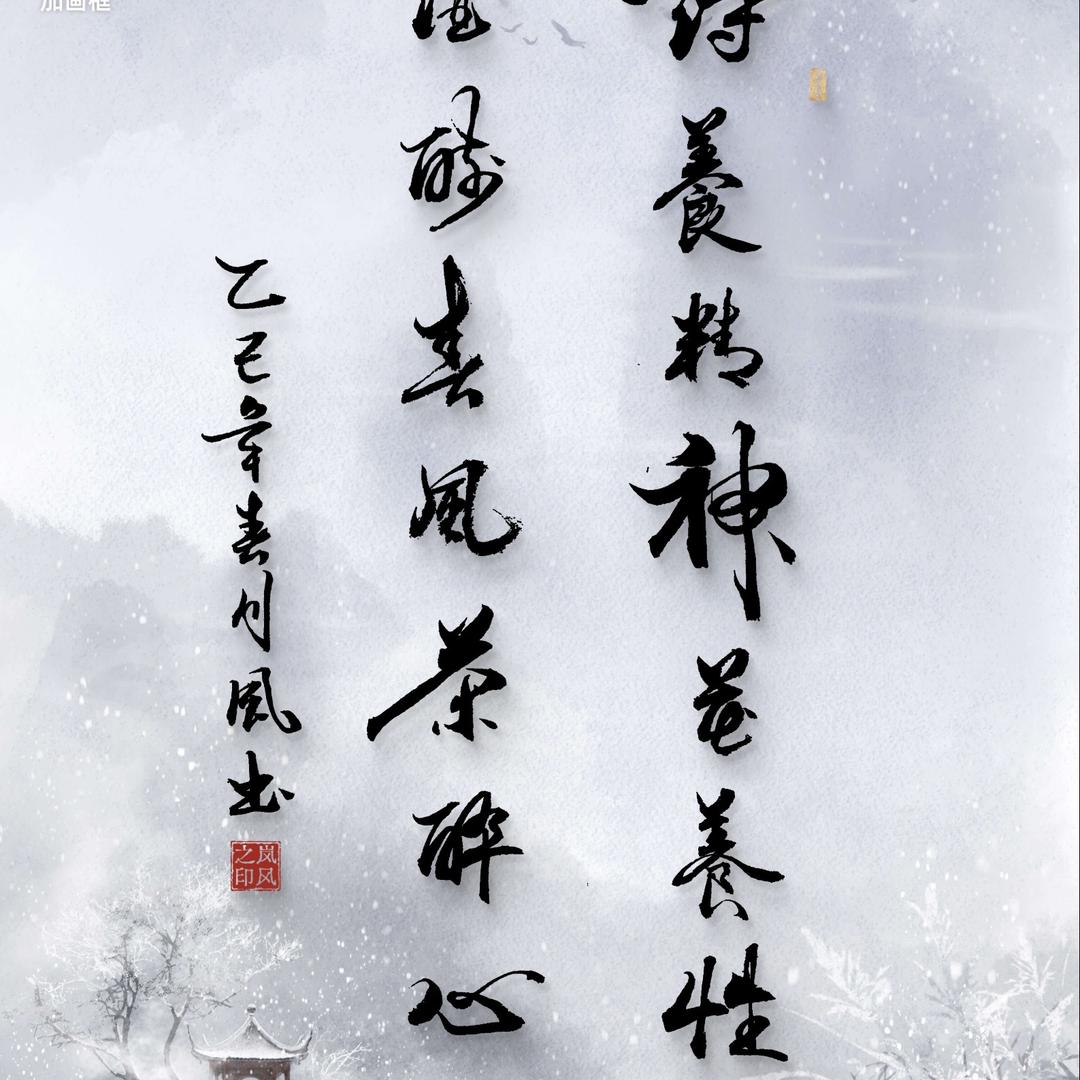 加画框
诗養精神花養性
酒春風茶醉心
乙巳年春月風书
岚风之印